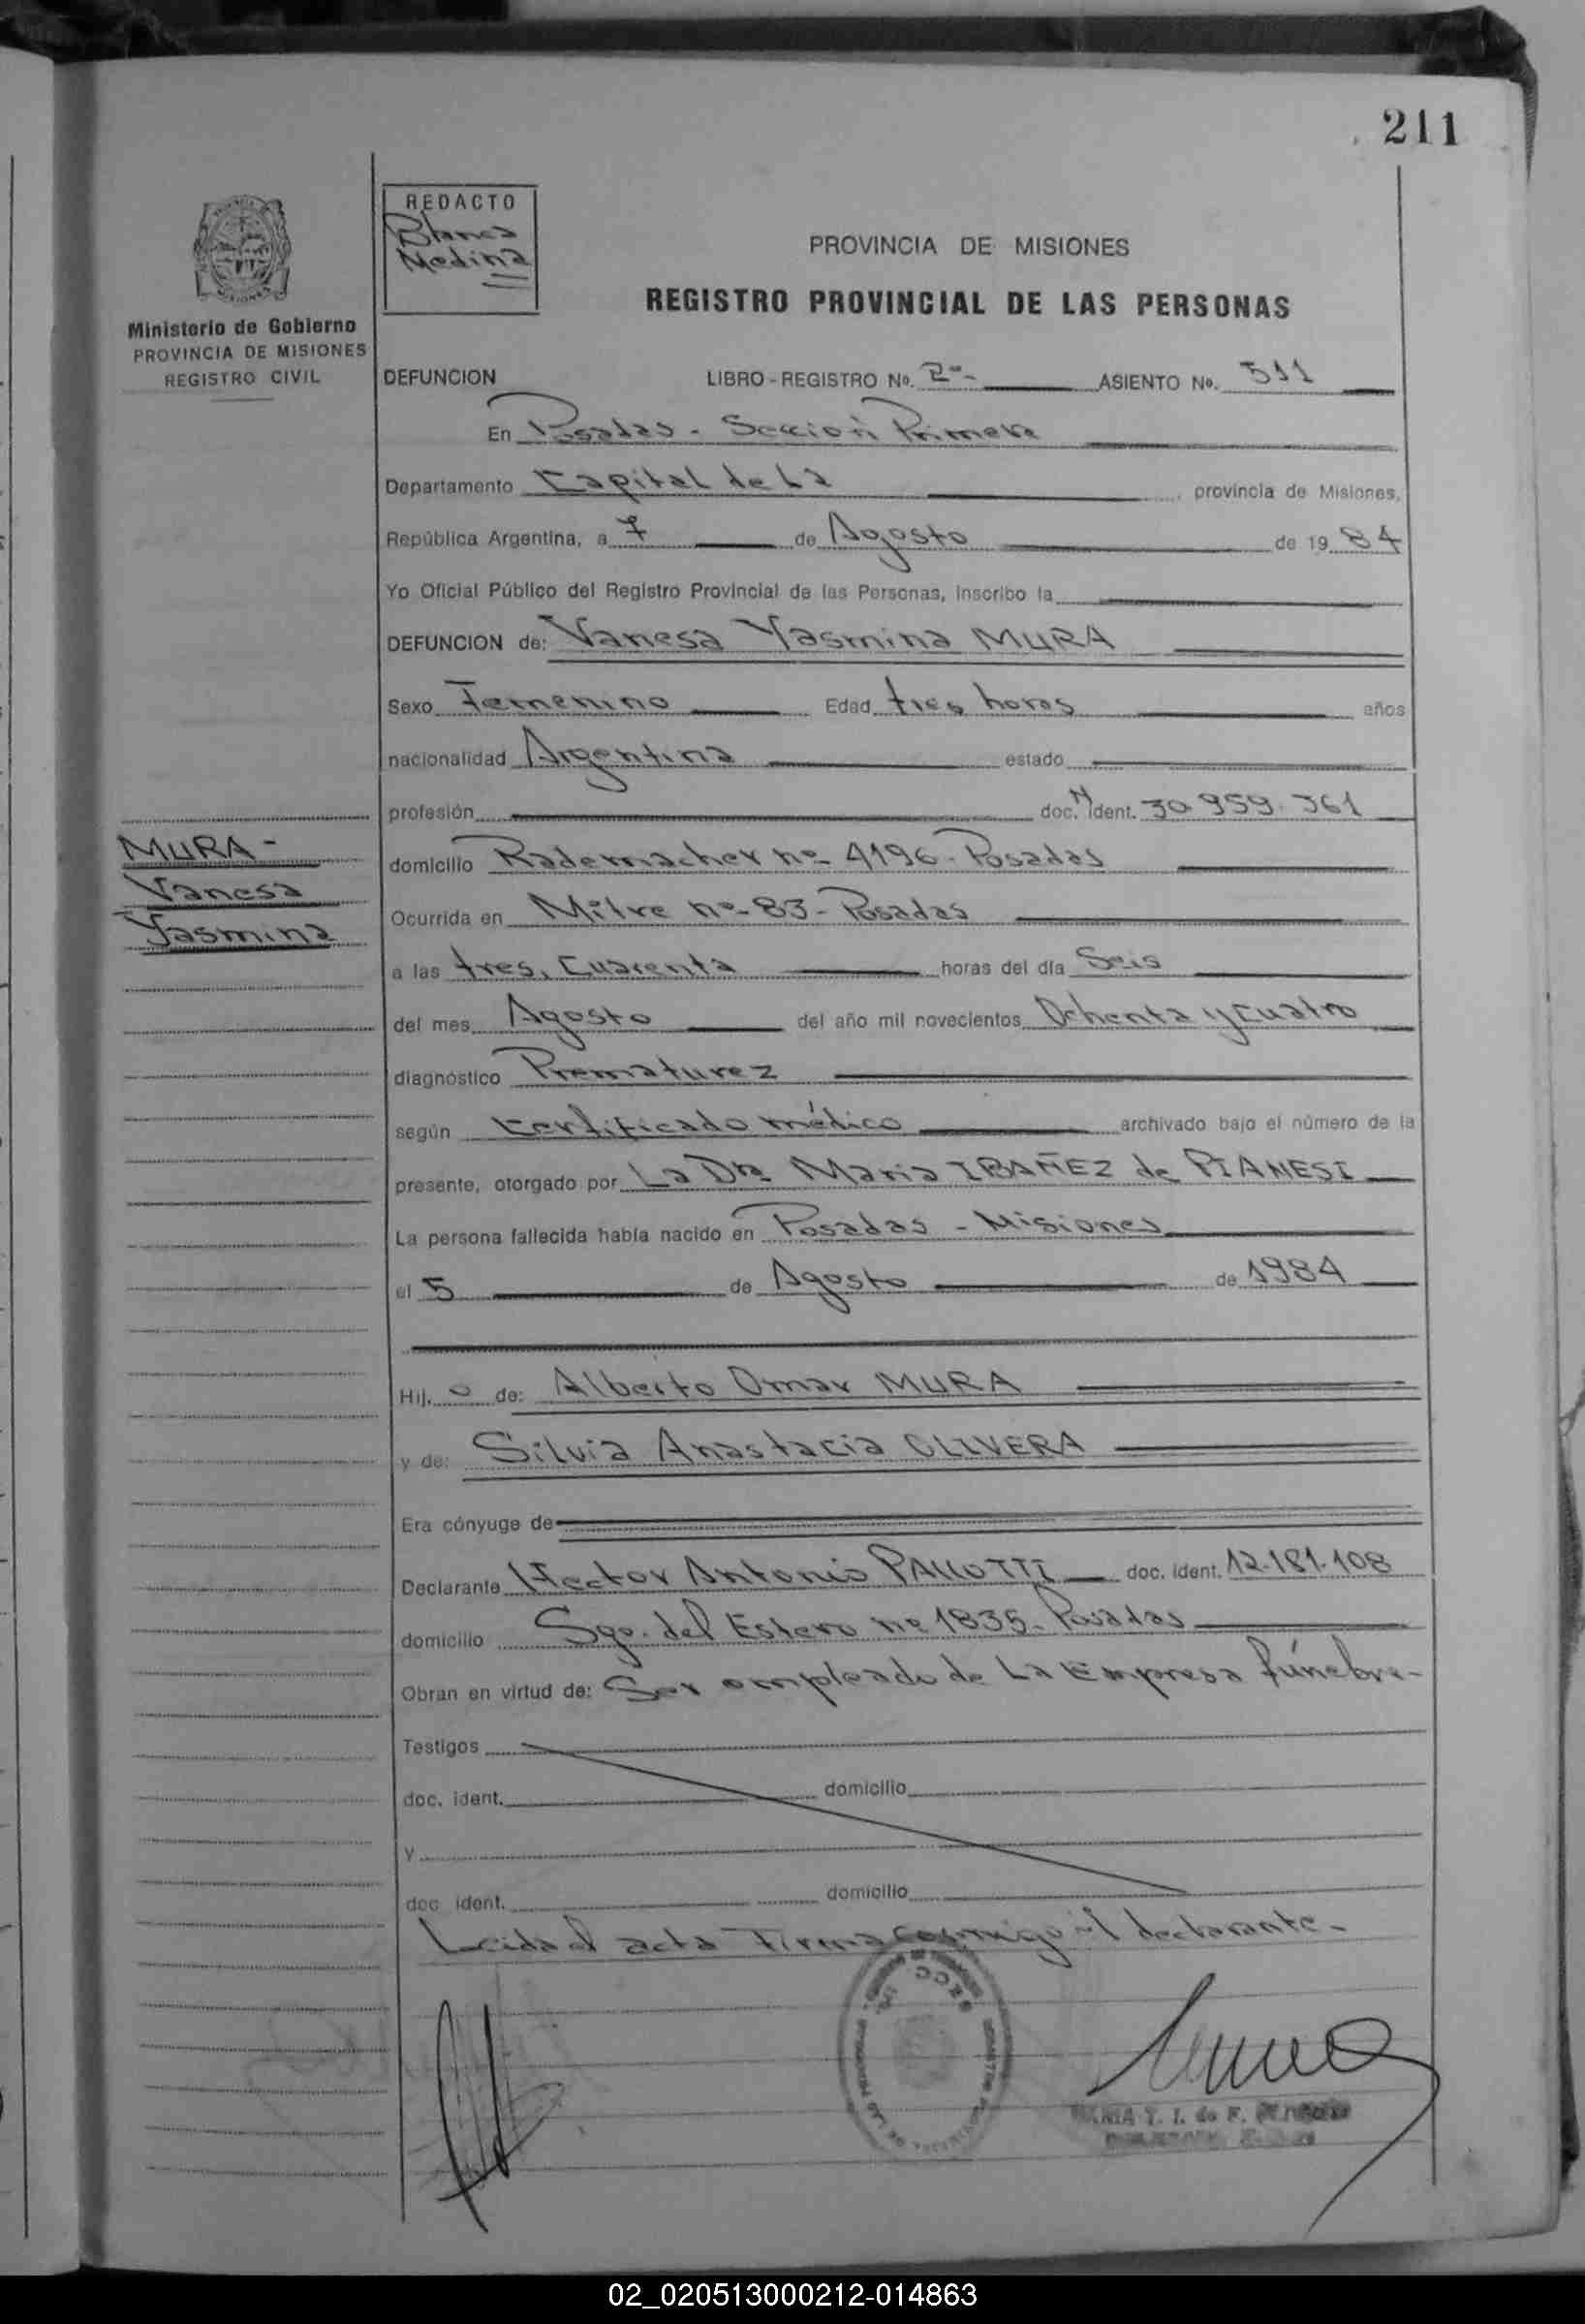 211
REDACTO
Blanca
Medina
PROVINCIA DE MISIONES
REGISTRO PROVINCIAL DE LAS PERSONAS
Ministerio de Gobierno
PROVINCIA DE MISIONES
REGISTRO CIVIL
DEFUNCION LIBRO - REGISTRO No. 2º- ASIENTO No. 511
En Posadas - Sección Primera
Departamento Capital de La provincia de Misiones,
República Argentina, a 7 de Agosto de 19 84
Yo Oficial Público del Registro Provincial de las Personas, inscribo la
DEFUNCION de: Vanesa Yasmina MURA
Sexo Femenino Edad tres horas años
nacionalidad Argentina estado
profesión doc. N ident. 30.959.361
MURA-
Vanesa
Yasmina
domicilio Rademacher nº 4196- Posadas
Ocurrida en Mitre nº-83- Posadas
a las tres, Cuarenta horas del día Seis
del mes Agosto del año mil novecientos Ochenta y cuatro
diagnóstico Prematurez
según certificado médico archivado bajo el número de la
presente, otorgado por La Dra Maria IBAÑEZ de PIANESI
La persona fallecida había nacido en Posadas - Misiones
el 5 de Agosto de 1984
Hij. o de: Alberto Omar MURA
y de: Silvia Anastacia OLIVERA
Era cónyuge de
Declarante Hector Antonio PALLOTTI doc. ident. 12.181.108
domicilio Sgo. del Estero nº 1835- Posadas
Obran en virtud de: Ser empleado de La Empresa fúnebre-
Testigos
doc. ident. domicilio
y
doc. ident. domicilio
Leida el acta Firma conmigo el declarante-
MARIA T. I. de F.
02_020513000212-014863